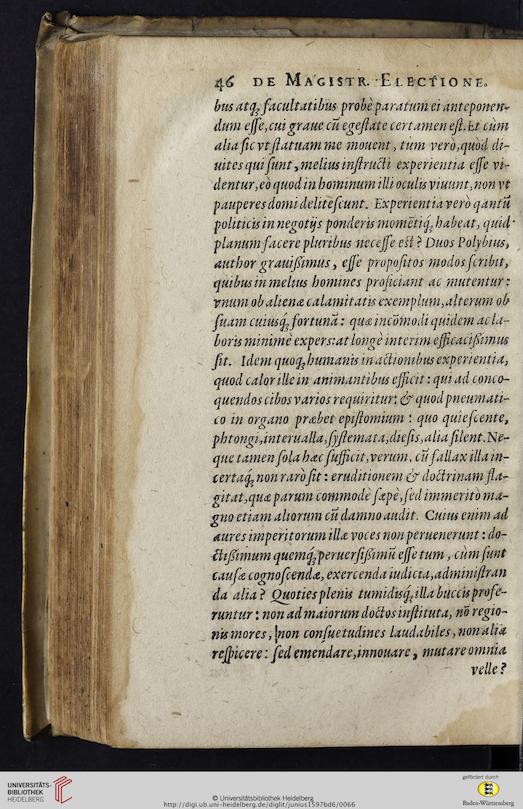 46 DE MAGISTR. ELECTIONE.
bus atq; facultatibus probè paratum ei anteponen-
dum esse, cui graue cū egestate certamen est. Et cùm
alia sic vt statuam me mouent, tum verò, quòd di-
uites qui sunt, melius instructi experientia esse vi-
dentur, eò quod in hominum illi oculis viuunt, non vt
pauperes domi delitescunt. Experientia verò qantū
politicis in negotijs ponderis momētiq; habeat, quid
planum facere pluribus necesse est? Duos Polybius,
author grauißimus, esse propositos modos scribit,
quibus in melius homines proficiant ac mutentur:
vnum ob alienæ calamitatis exemplum, alterum ob
suam cuiusq; fortunā: quæ incōmodi quidem ac la-
boris minimè expers: at longè interim efficacißimus
sit. Idem quoq; humanis in actionibus experientia,
quod calor ille in animantibus efficit: qui ad conco-
quendos cibos varios requiritur: & quod pneumati-
co in organo præbet epistomium: quo quiescente,
phtongi, interualla, systemata, diesis, alia silent. Ne-
que tamen sola hæc sufficit, verum, cū fallax illa in-
certaq; non rarò sit: eruditionem & doctrinam fla-
gitat, quæ parum commodè sæpè, sed immeritò ma-
gno etiam aliorum cū damno audit. Cuius enim ad
aures imperitorum illæ voces non peruenerunt: do-
ctißimum quemq; peruersißimū esse tum, cùm sunt
causæ cognoscendæ, exercenda iudicia, administran
da alia? Quoties plenis tumidisq; illa buccis profe-
runtur: non ad maiorum doctos instituta, nō regio-
nis mores, non consuetudines laudabiles, non alia
respicere: sed emendare, innouare, mutare omnia
velle?
UNIVERSITÄTS-
BIBLIOTHEK
HEIDELBERG
© Universitätsbibliothek Heidelberg
http://digi.ub.uni-heidelberg.de/diglit/junius1597bd6/0066
gefördert durch
Baden-Württemberg